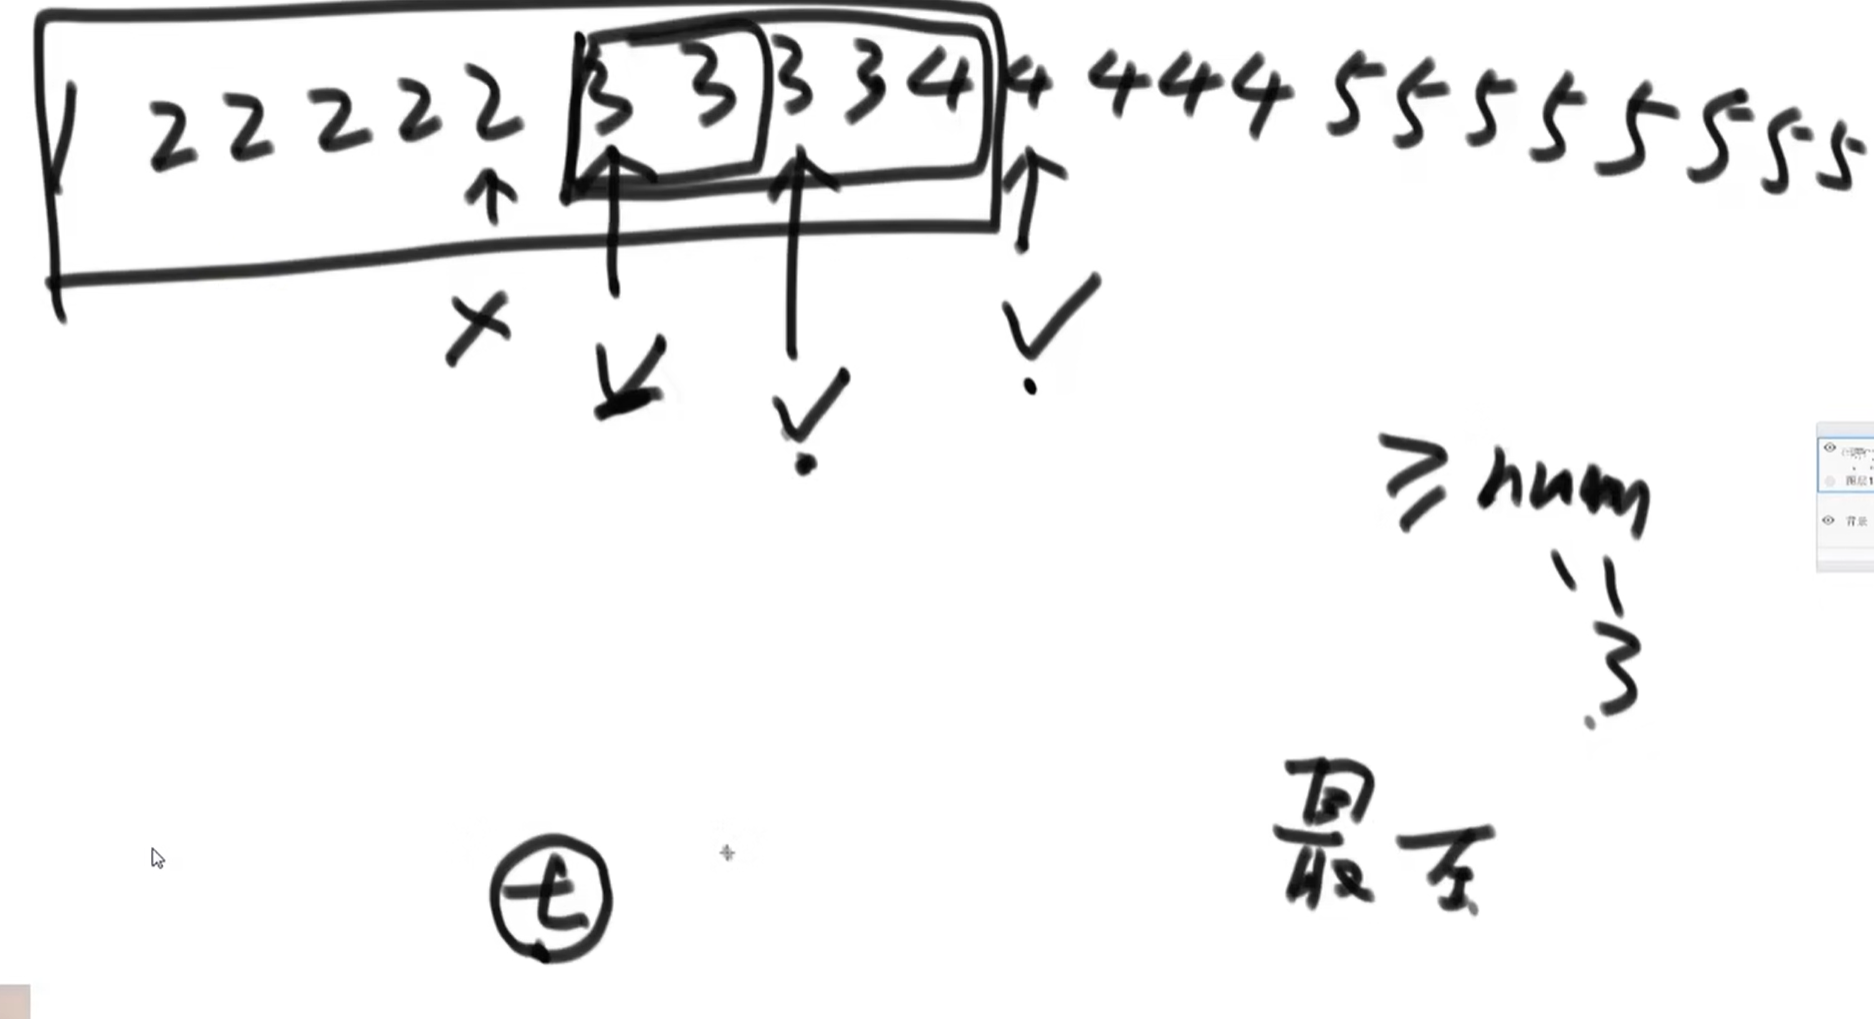 1 2 2 2 2 2 3 3 3 3 4 4 4 4 4 5 5 5 5 5 5 5 5
≥ num
3
最左
t
图层1
背景